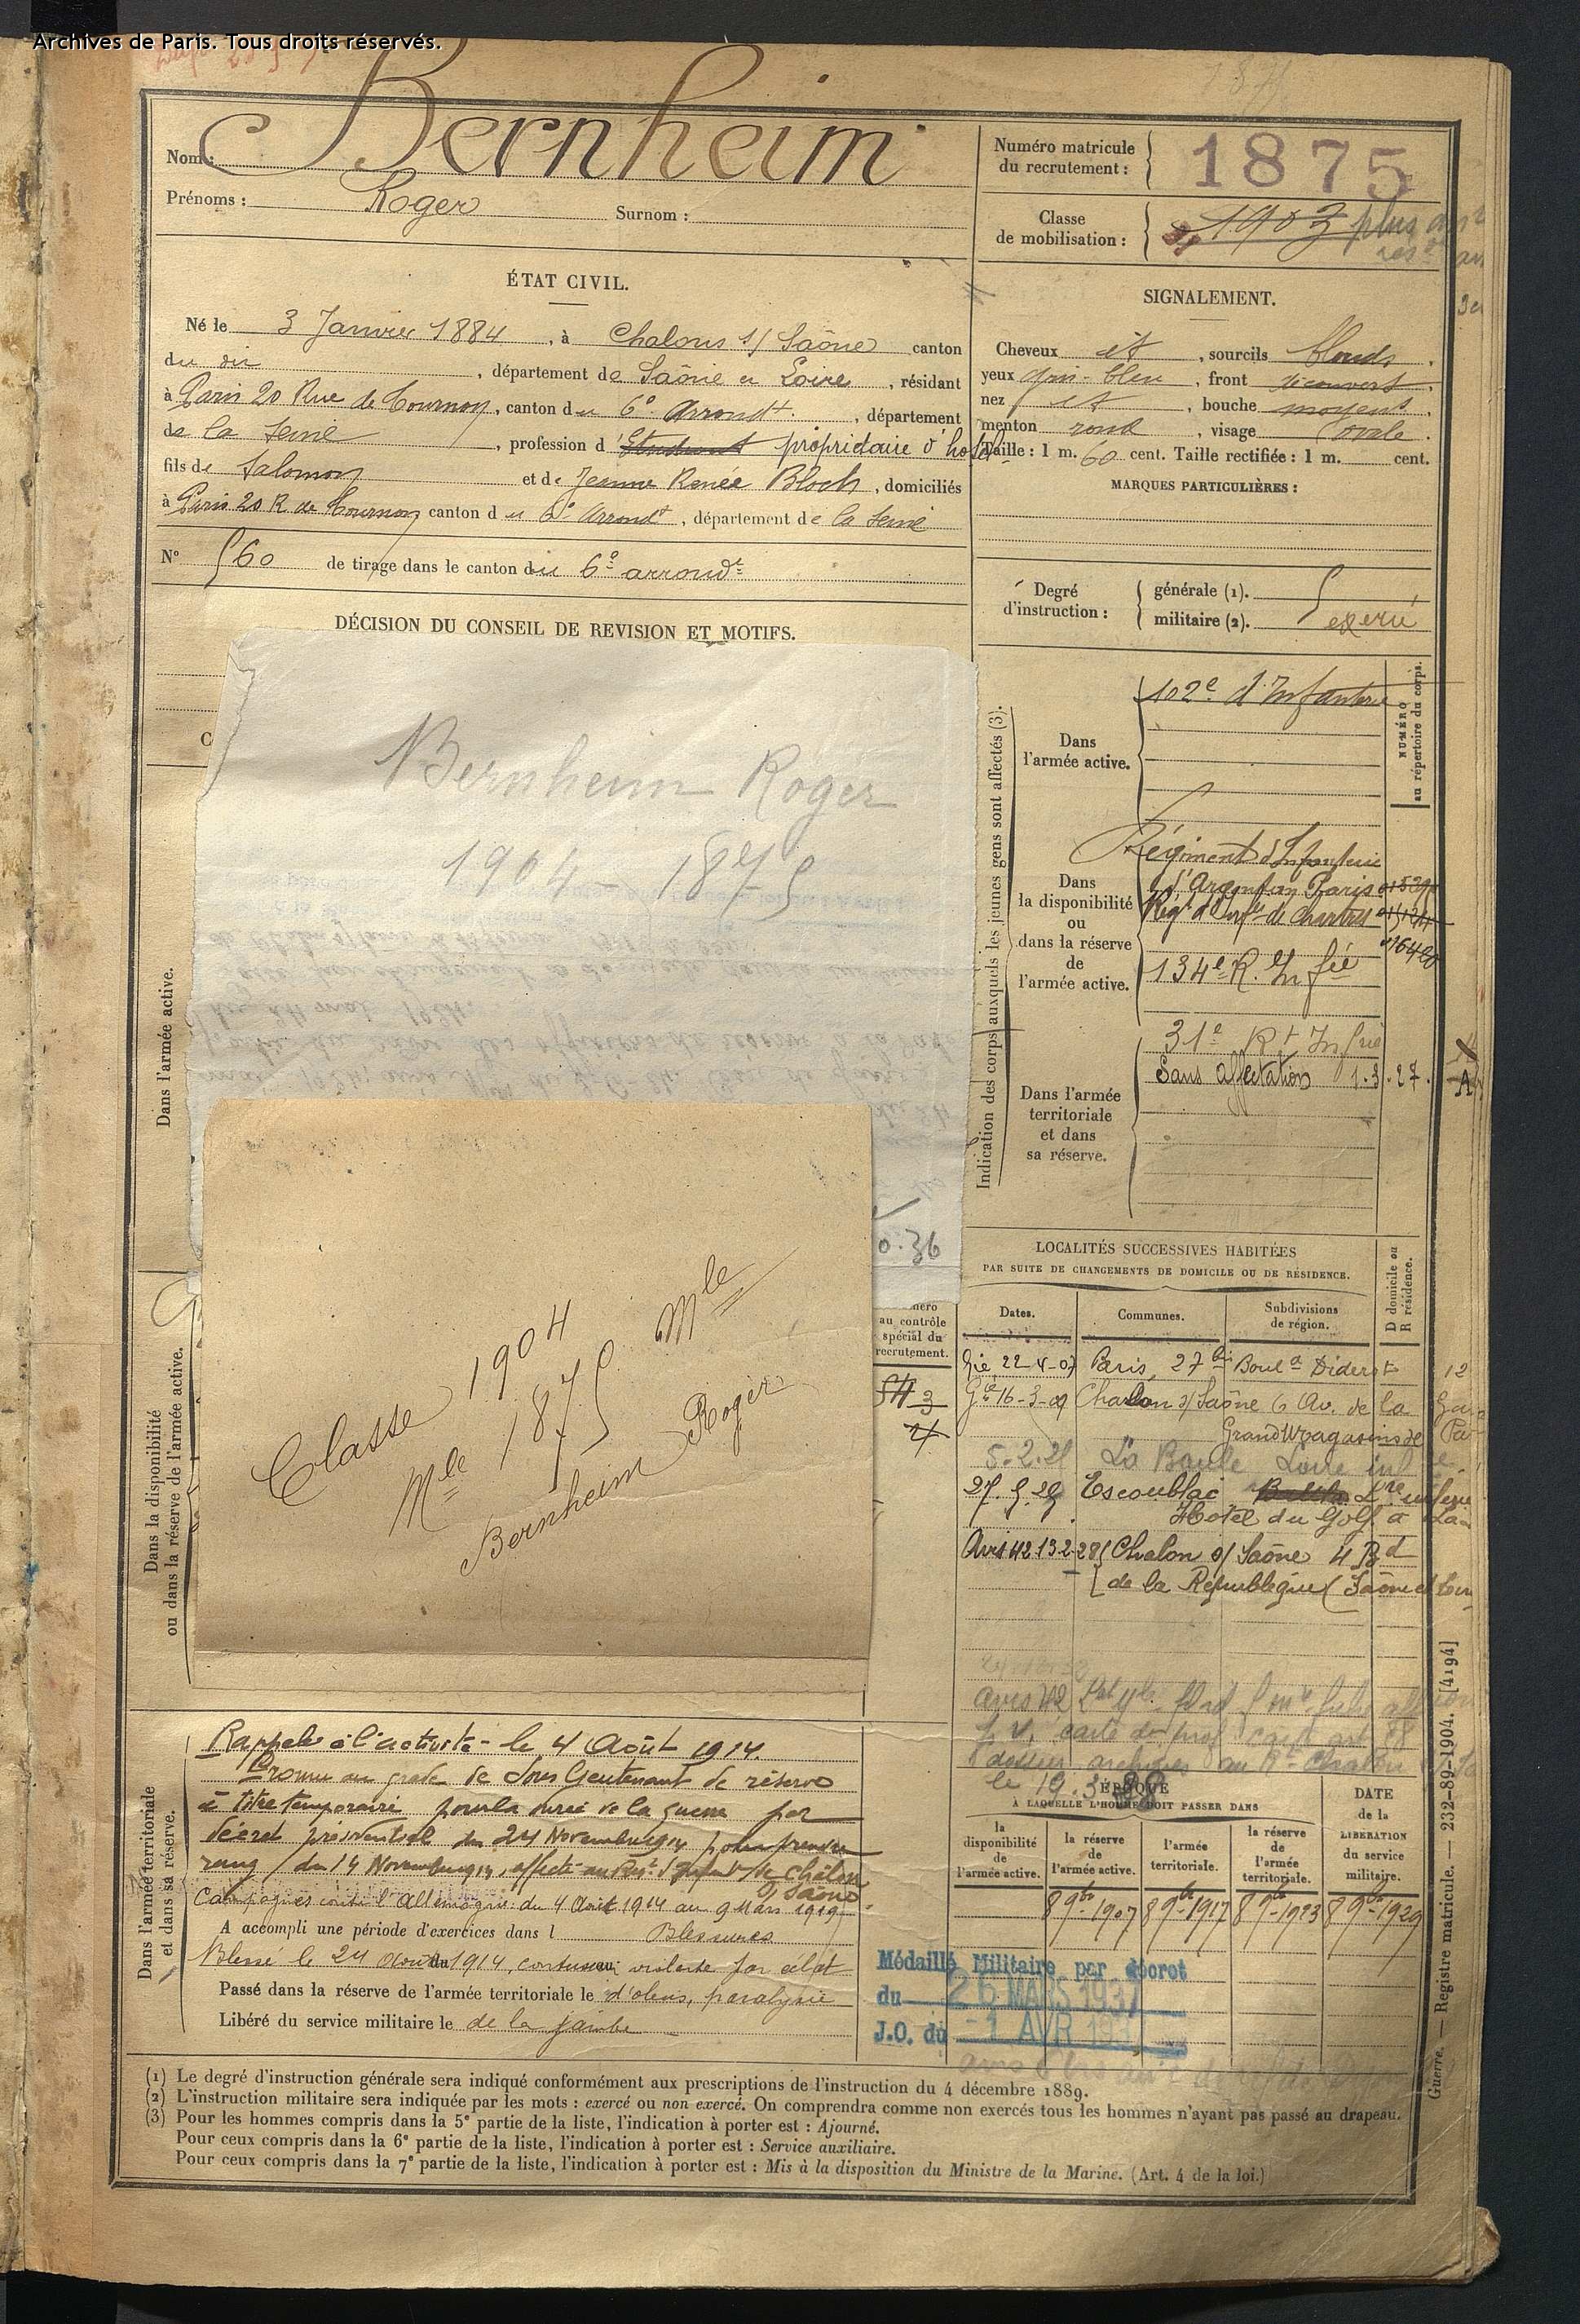 Archives de Paris. Tous droits réservés.
Nom : Bernheim
Prénoms : Roger Surnom :
Numéro matricule
du recrutement : 1875
Classe
de mobilisation : 1903 plus
ÉTAT CIVIL.
Né le 3 Janvier 1884, à Chalons s/ Saône canton
du dit, département de Saône et Loire, résidant
à Paris 20 Rue de Tournon, canton du 6e Arrondt., département
de la Seine, profession d'Etudiant propriétaire d'hotel
fils de Salomon et de Jeanne Renée Bloch, domiciliés
à Paris 20 R. de Tournon canton du 6e Arrondt, département de la Seine
N° 560 de tirage dans le canton du 6e arrondt
SIGNALEMENT.
Cheveux et, sourcils blonds.
yeux gris-bleu, front découvert,
nez et, bouche moyens.
menton rond, visage ovale.
Taille : 1 m. 60 cent. Taille rectifiée : 1 m. cent.
MARQUES PARTICULIÈRES :
Degré
d'instruction :
générale (1).
militaire (2). exercé
DÉCISION DU CONSEIL DE REVISION ET MOTIFS.
C
Bernheim Roger
1904 – 1875
0.36
Classe 1904 Mle
Mle 1875
Bernheim Roger
Dans l'armée active.
Dans la disponibilité
ou dans la réserve de l'armée active.
Indication des corps auxquels les jeunes gens sont affectés (3).
NUMÉRO
au répertoire du corps.
Dans
l'armée active.
102e d'Infanterie
Dans
la disponibilité
ou
dans la réserve
de
l'armée active.
Régiment d'Infanterie
d'Argentan Paris
Régt d'Infie de Chartres
134e R. Infie
Dans l'armée
territoriale
et dans
sa réserve.
31e Rt Infie
Sans affectation 1.3.27.
A
LOCALITÉS SUCCESSIVES HABITÉES
PAR SUITE DE CHANGEMENTS DE DOMICILE OU DE RÉSIDENCE.
D domicile ou
R résidence.
au contrôle
spécial du
recrutement.
Dates. Communes. Subdivisions
de région.
22-4-07 Paris, 27 bis Bould Diderot 12
16-3-09 Chalon s/ Saône 6 Av. de la
Grand Magasins de
5.2.21 La Baule Loire inf
27.5.25 Escoublac Lre infer
Hotel du Golf à La
Avis 42 13-2-28 Chalon s/ Saône 4 Bd
de la République (Saône et Loire
dossier archives au Rt Chalon
le 19.3.38
Dans l'armée territoriale
et dans sa réserve.
Rappelé à l'activité le 4 Août 1914.
Promu au grade de Sous Lieutenant de réserve
à titre temporaire pour la durée de la guerre par
décret présidentiel du 24 Novembre 1914 pour prendre
rang du 14 Novembre 1914, affecté au Régt d'Infant de Châlon
s/ Saône
Campagnes contre l'Allemagne : du 4 Août 1914 au 9 Mars 1919
A accompli une période d'exercices dans l Blessures
Blessé le 24 Août 1914, contusion violente par éclat
Passé dans la réserve de l'armée territoriale le d'obus, paralysie
Libéré du service militaire le de la jambe
ÉPOQUE
À LAQUELLE L'HOMME DOIT PASSER DANS
la
disponibilité
de
l'armée active.
la réserve
de
l'armée active.
l'armée
territoriale.
la réserve
de
l'armée
territoriale.
DATE
de la
LIBÉRATION
du service
militaire.
8 9bre 1907 8 9bre 1917 8 9bre 1923 8 9bre 1929
Médaillé Militaire par décret
du 26 MARS 1937
J.O. du -1 AVR
(1) Le degré d'instruction générale sera indiqué conformément aux prescriptions de l'instruction du 4 décembre 1889.
(2) L'instruction militaire sera indiquée par les mots : exercé ou non exercé. On comprendra comme non exercés tous les hommes n'ayant pas passé au drapeau.
(3) Pour les hommes compris dans la 5e partie de la liste, l'indication à porter est : Ajourné.
Pour ceux compris dans la 6e partie de la liste, l'indication à porter est : Service auxiliaire.
Pour ceux compris dans la 7e partie de la liste, l'indication à porter est : Mis à la disposition du Ministre de la Marine. (Art. 4 de la loi.)
Guerre. — Registre matricule. — 232-89-1904. [4194]